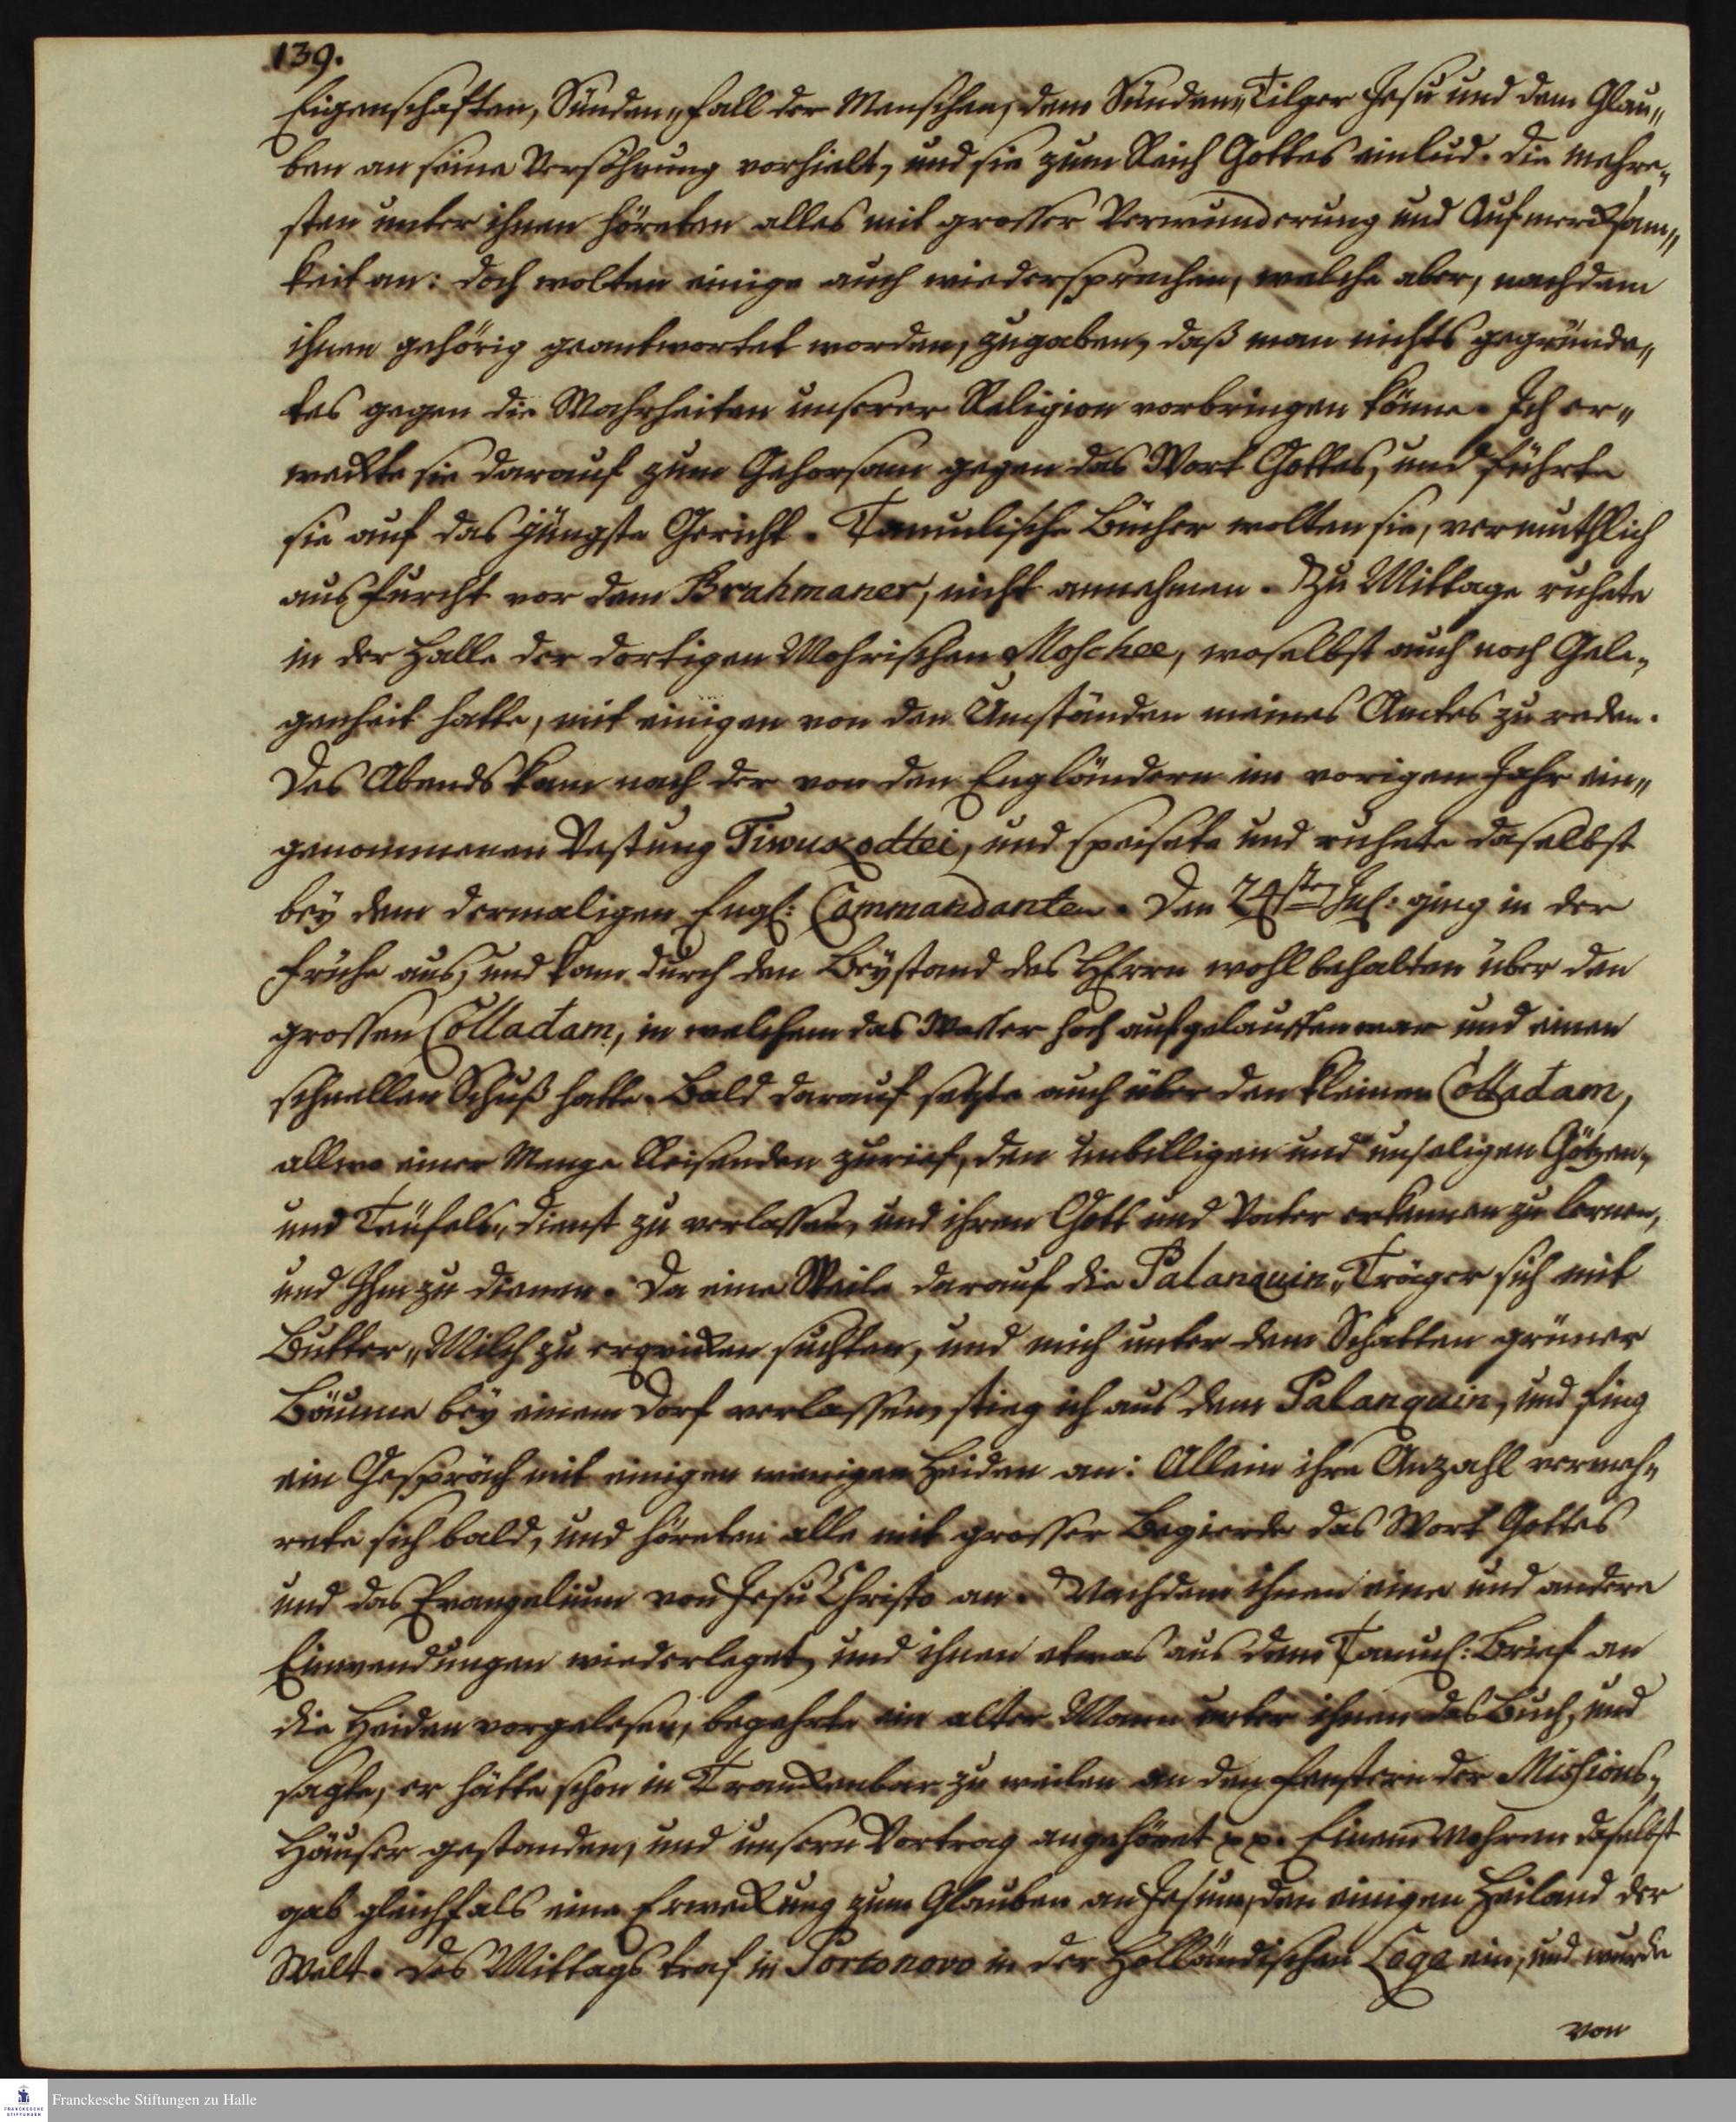 139.
Eigenschaften, Sünden„Fall der Menschen, dem Sünden„Tilger Jesu und dem Glau„
ben an seine Versöhnung vorhielt, und sie zum Reich Gottes einlud. Die mehre„
sten unter ihnen höreten alles mit grosser Verwunderung und Aufmercksam„
keit an: doch wolten einige auch wiedersprechen, welche aber, nachdem
ihnen gehörig geantwortet worden, zugaben, daß man nichts gegründe„
tes gegen die Wahrheiten unserer Religion vorbringen könne. Ich er„
weckte sie darauf zum Gehorsam gegen das Wort Gottes, und führte
sie auf das jüngste Gericht. Tamulische Bücher wolten sie, vermuthlich
aus Furcht vor dem Brahmaner, nicht annehmen. Zu Mittage ruhete
in der Halle der dortigen Mohrischen Moschee, woselbst auch noch Gele„
genheit hatte, mit einigen von den Umständen meines Amtes zu reden.
Des Abends kam nach der von den Engländern im vorigen Jahr ein„
genommenen Vestung Tiwukodtei, und speisete und ruhete daselbst
bey dem dermaligen Engl: Commandanten. Den 24sten Jul: ging in der
Frühe aus, und kam durch den Beystand des HErrn wohlbehalten über den
grossen Colladam, in welchem das Wasser hoch aufgelauffen war und einen
schnellen Schuß hatte. Bald darauf setzte auch über den kleinen Colladam,
allwo einer Menge Reisenden zurief, den unbilligen und unseligen Götzen„
und Teüfels„dienst zu verlassen, und ihren Gott und Vater erkennen zu lernen,
und Ihm zu dienen. Da eine Weile darauf die Palanquin„Träger sich mit
Butter„Milch zu erquicken suchten, und mich unter dem Schatten grüner
Bäume bey einem Dorf verlassen, stieg ich aus dem Palanquin, und fing
ein Gespräch mit einigen wenigen Heiden an: Allein ihre Anzahl vermeh„
rete sich bald, und höreten alle mit grosser Begierde das Wort Gottes
und das Evangelium von Jesu Christo an. Nachdem ihnen eine und andere
Einwendungen wiederleget, und ihnen etwas aus dem Tamul: Brief an
die Heiden vorgelesen, begehrte ein alter Mann unter ihnen das Buch, und
sagte, er hätte schon in Tranckenbar zu weilen an den Fenstern der Missions„
Häuser gestanden, und unsern Vortrag angehöret pp. Einem Mohren daselbst
gab gleichfals eine Erweckung zum Glauben an Jesum, den einigen Heiland der
Welt. Des Mittags traf in Portonovo in der Holländischen Loge ein, und wurde
von
Franckesche Stiftungen zu Halle
FRANCKESCHE
STIFTUNGEN